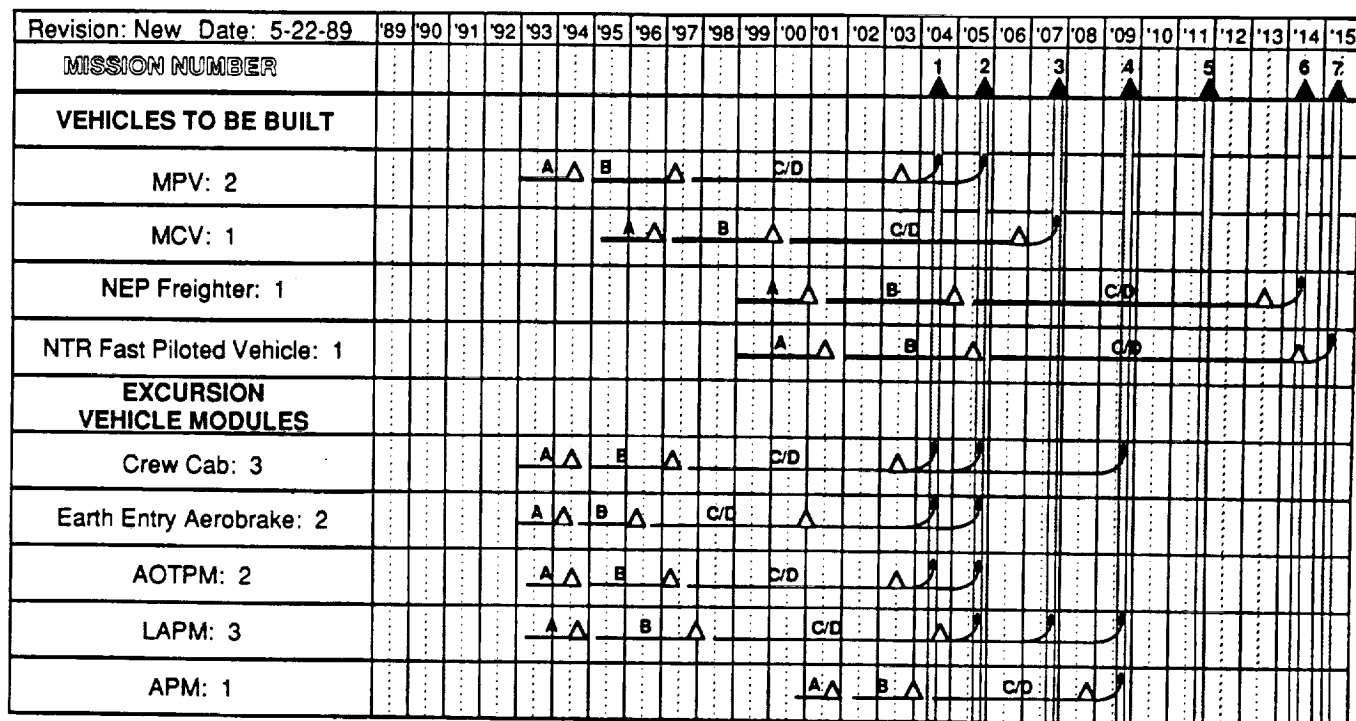 Revision: New Date: 5-22-89 '89 '90 '91 '92 '93 '94 '95 '96 '97 '98 '99 '00 '01 '02 '03 '04 '05 '06 '07 '08 '09 '10 '11 '12 '13 '14 '15
MISSION NUMBER 1 2 3 4 5 6 7
VEHICLES TO BE BUILT
MPV: 2 A B C/D
MCV: 1 A B C/D
NEP Freighter: 1 A B C/D
NTR Fast Piloted Vehicle: 1 A B C/D
EXCURSION
VEHICLE MODULES
Crew Cab: 3 A B C/D
Earth Entry Aerobrake: 2 A B C/D
AOTPM: 2 A B C/D
LAPM: 3 A B C/D
APM: 1 A B C/D